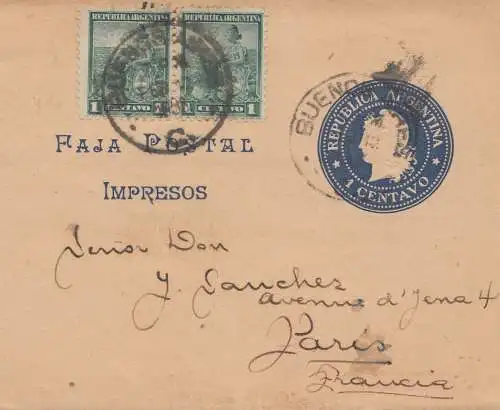 REPUBLICA ARGENTINA REPUBLICA ARGENTINA
1 CENTAVO 1 1 CENTAVO 1
BUENOS
FAJA POSTAL
IMPRESOS
BUENOS AIRES
REPUBLICA ARGENTINA
1 CENTAVO
Señor Don
J. Sanchez
avenue d'Jena 4
Paris
Francia